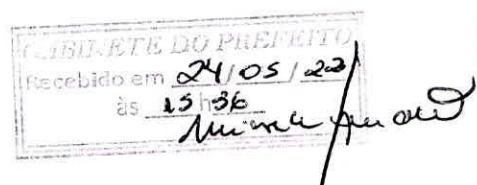 GABINETE DO PREFEITO
Recebido em 24/05/23
às 15h36